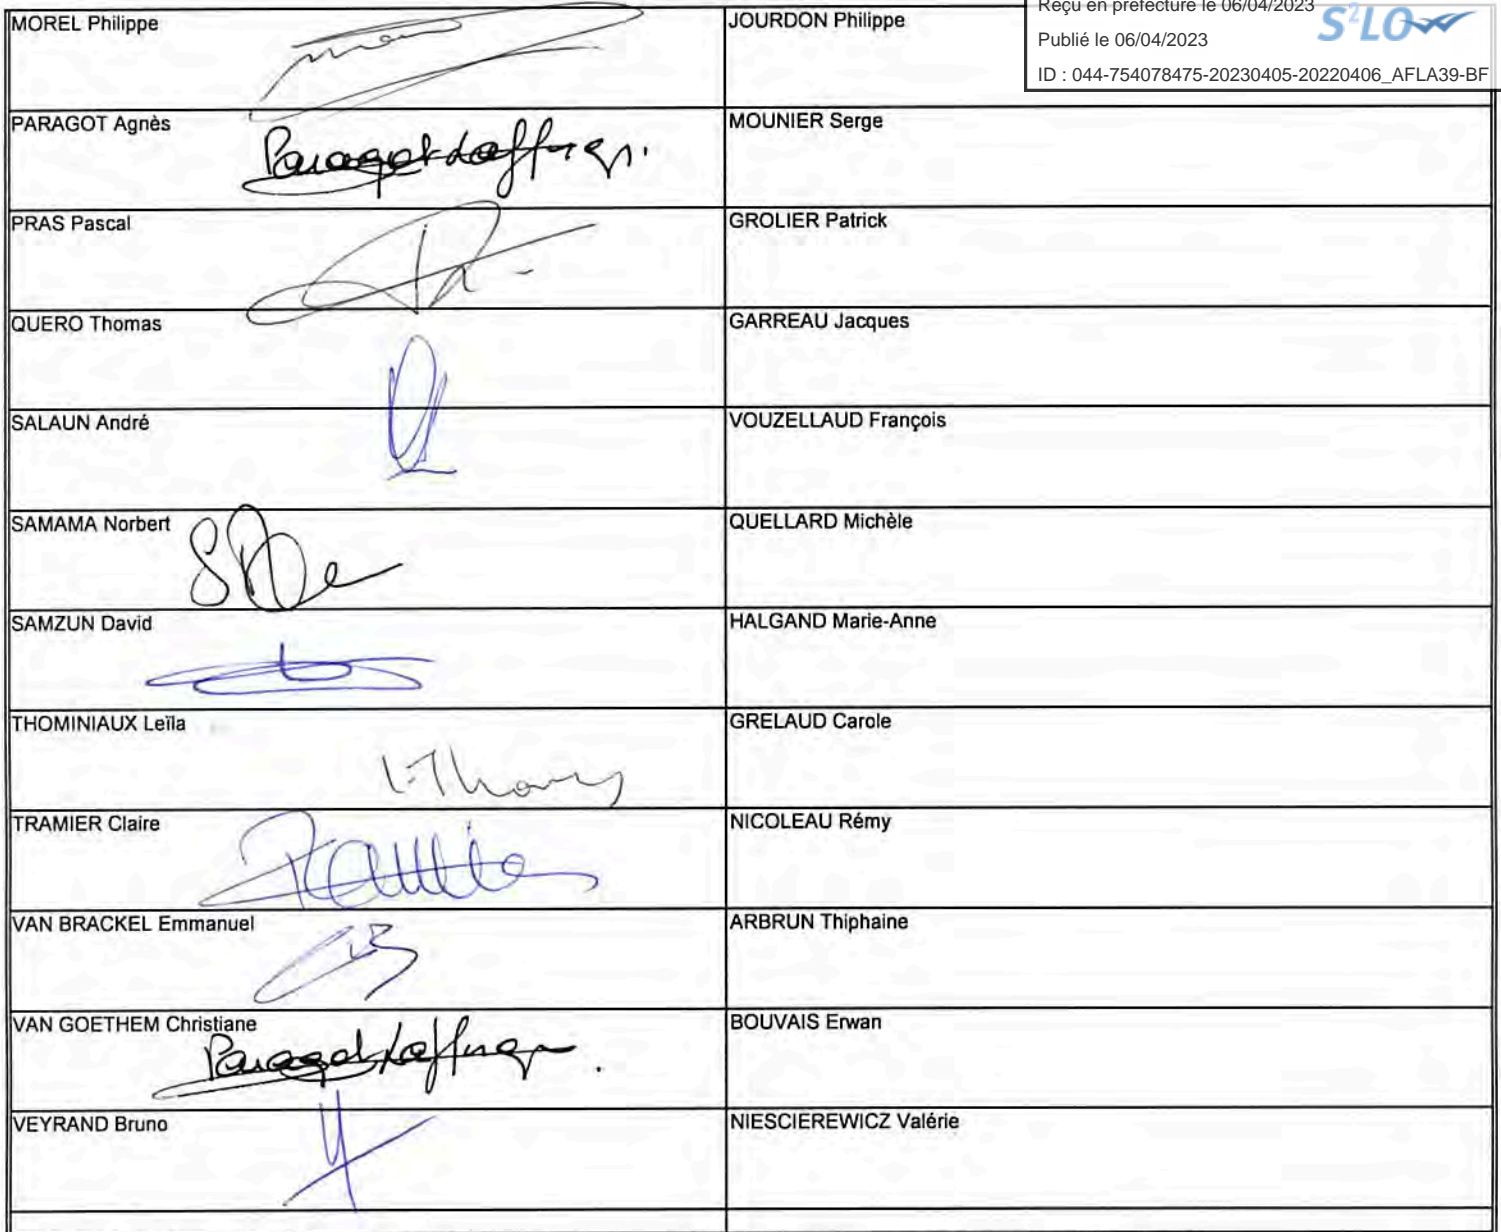 Reçu en préfecture le 06/04/2023
Publié le 06/04/2023
S²LOW
ID : 044-754078475-20230405-20220406_AFLA39-BF
MOREL Philippe
JOURDON Philippe
PARAGOT Agnès
MOUNIER Serge
Paragot Laffneg.
PRAS Pascal
GROLIER Patrick
QUERO Thomas
GARREAU Jacques
SALAUN André
VOUZELLAUD François
SAMAMA Norbert
QUELLARD Michèle
SAMZUN David
HALGAND Marie-Anne
THOMINIAUX Leïla
GRELAUD Carole
TRAMIER Claire
NICOLEAU Rémy
VAN BRACKEL Emmanuel
ARBRUN Thiphaine
VAN GOETHEM Christiane
BOUVAIS Erwan
VEYRAND Bruno
NIESCIEREWICZ Valérie